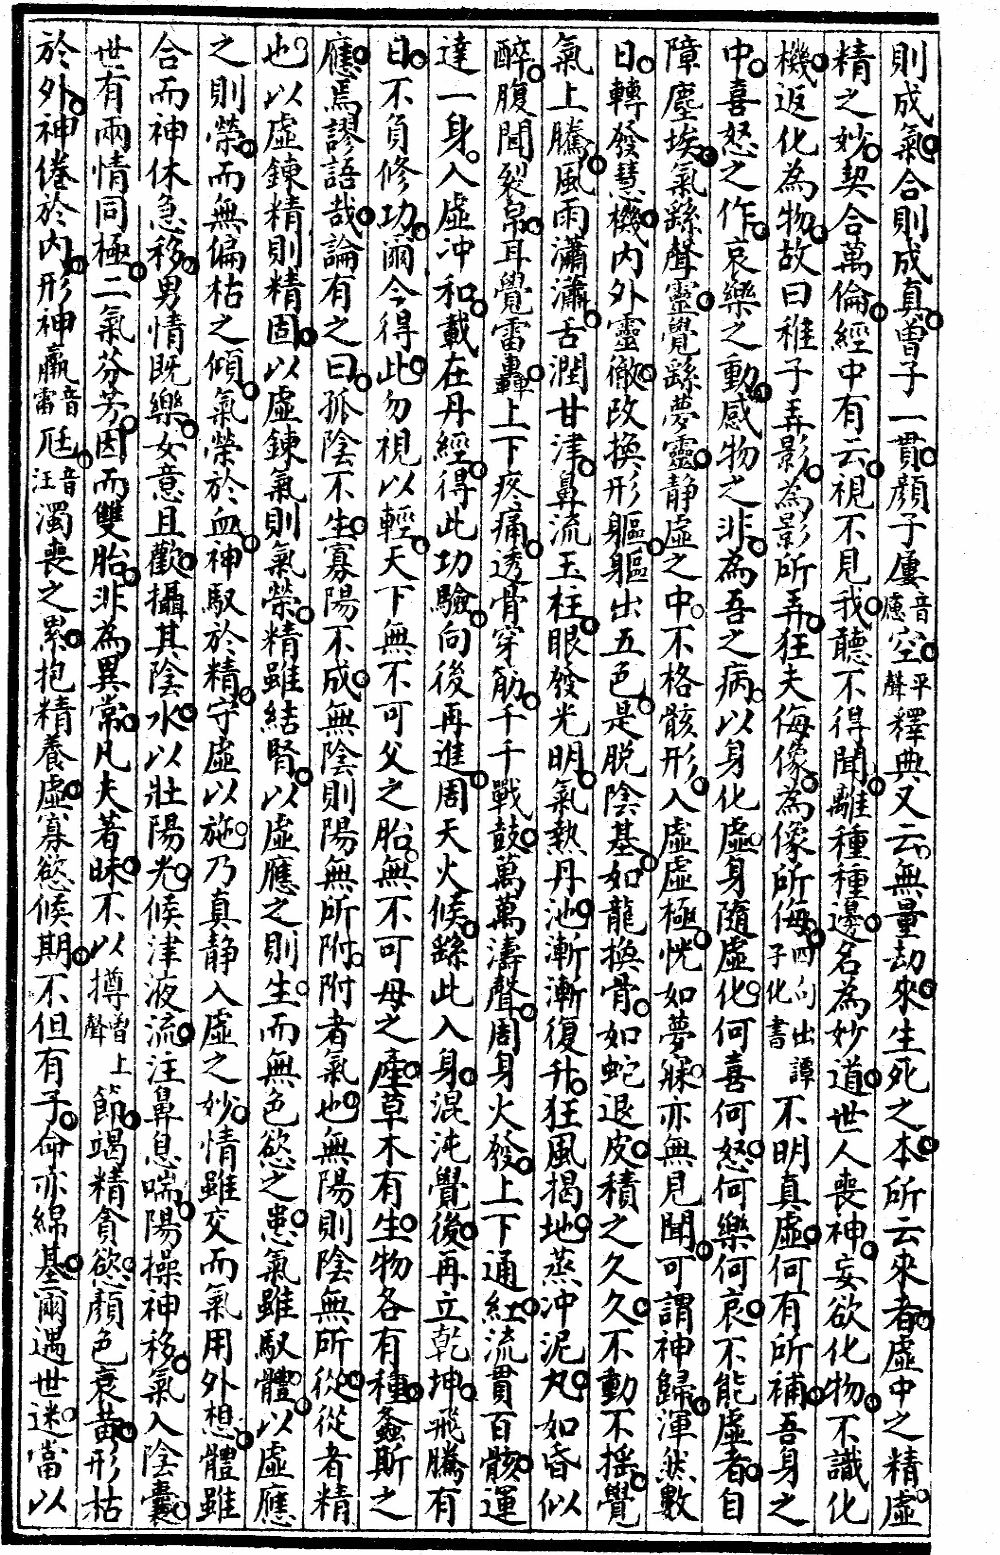 則成氣合則成真曽子一貫顏子屢音慮空平聲釋典又云無量劫來生死之本所云來者虛中之精虛
精之妙契合萬倫經中有云視不見我聽不得聞離種種邊名為妙道世人喪神妄欲化物不識化
機返化為物故曰稚子弄影為影所弄狂夫侮像為像所侮四句出譚子化書不明真虛何有所補吾身之
中喜怒之作哀樂之動感物之非為吾之病以身化虛身隨虛化何喜何怒何樂何哀不能虛者自
障塵埃氣繇聲靈覺繇夢靈静虛之中不格骸形入虛虛極恍如夢寐亦無見聞可謂神歸渾然數
日轉發慧機內外靈徹改換形軀軀出五色是脫陰基如龍換骨如蛇退皮積之久久不動不摇覺
氣上騰風雨瀟瀟舌潤甘津鼻流玉柱眼發光明氣熱丹池漸漸復升狂風揭地蒸冲泥丸如昏似
醉腹聞裂帛耳覺雷轟上下疼痛透骨穿觔千千戰鼓萬萬濤聲周身火發上下通紅流貫百骸運
達一身入虛冲和載在丹經得此功驗向後再進周天火候繇此入身混沌覺後再立乾坤飛騰有
日不負修功爾今得此勿視以輕天下無不可父之胎無不可母之產草木有生物各有種螽斯之
應焉謬語哉論有之曰孤陰不生寡陽不成無陰則陽無所附附者氣也無陽則陰無所從從者精
也以虛鍊精則精固以虛鍊氣則氣榮精雖結腎以虛應之則生而無色慾之患氣雖馭體以虛應
之則榮而無偏枯之傾氣榮於血神馭於精守虛以施乃真静入虛之妙情雖交而氣用外想體雖
合而神休急移男情既樂女意且歡攝其陰水以壯陽光候津液流注鼻息喘陽操神移氣入陰囊
世有兩情同極二氣芬芳因而雙胎非為異常凡夫著昧不以撙曽上聲節竭精貪慾顏色衰黄形枯
於外神倦於內形神羸音雷尫音汪濁喪之累抱精養虛寡慾候期不但有子命亦綿基爾遇世迷當以